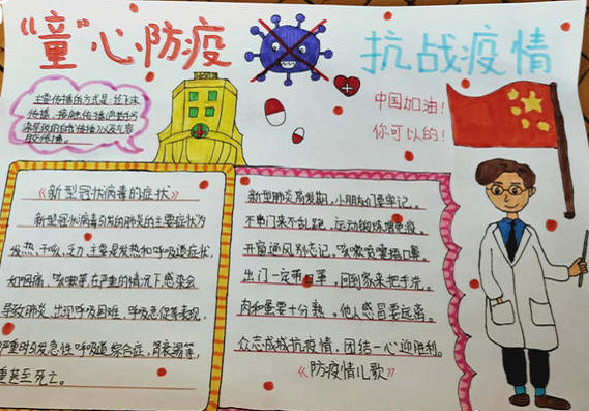 "童"心防疫
抗战疫情
主要传播的方式是：经飞沫
传播、接触传播(
中国加油！
你可以的！
《新型冠状病毒的症状》
新型冠状病毒引发的肺炎的主要症状为
发热、干咳、乏力，主要是发热和呼吸道症状，
如咽痛，咳嗽等，在严重的情况下感染会
导致肺炎，出现呼吸困难，呼吸急促等表现，
严重时引发急性呼吸道综合症，肾衰竭等，
重甚至死亡。
新型肺炎高发期，小朋友们要牢记。
不串门来不乱跑，运动锻炼增免疫。
开窗通风别忘记，咳嗽喷嚏捂口鼻。
出门一定带口罩。回到家来把手洗。
肉和蛋要十分熟。他人感冒要远离。
众志成城抗疫情，团结一心迎胜利。
《防疫情儿歌》